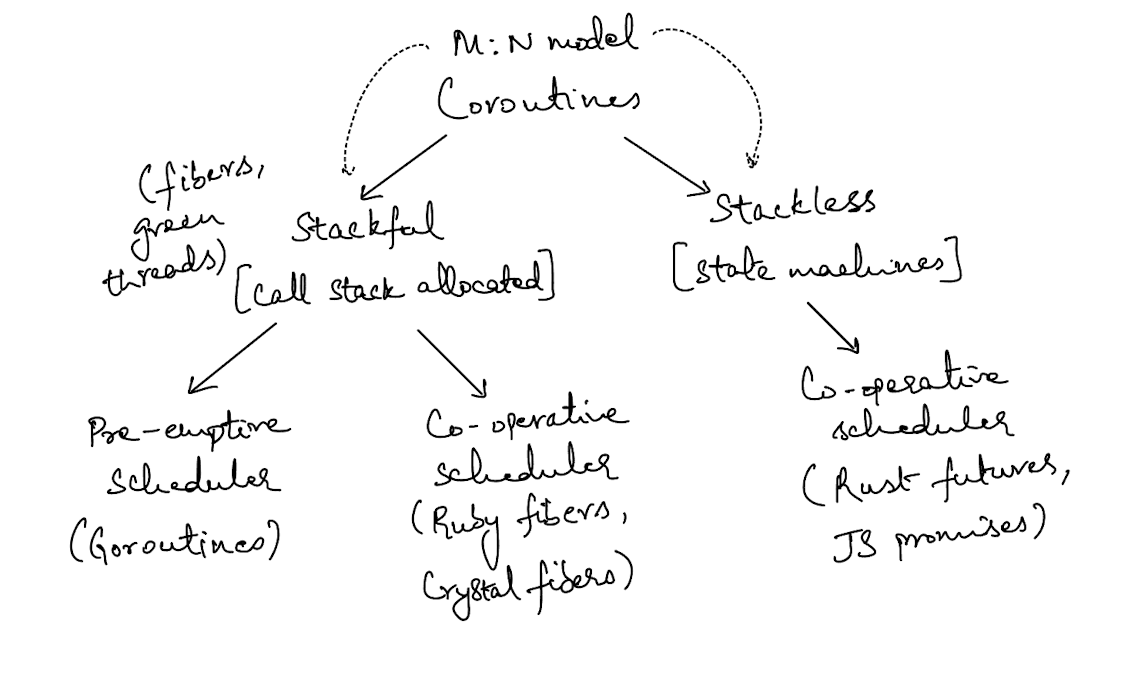 M:N model
Coroutines
(fibers,
green
threads)
Stackful
[call stack allocated]
Stackless
[state machines]
Pre-emptive
scheduler
(Goroutines)
Co-operative
scheduler
(Ruby fibers,
Crystal fibers)
Co-operative
scheduler
(Rust futures,
JS promises)